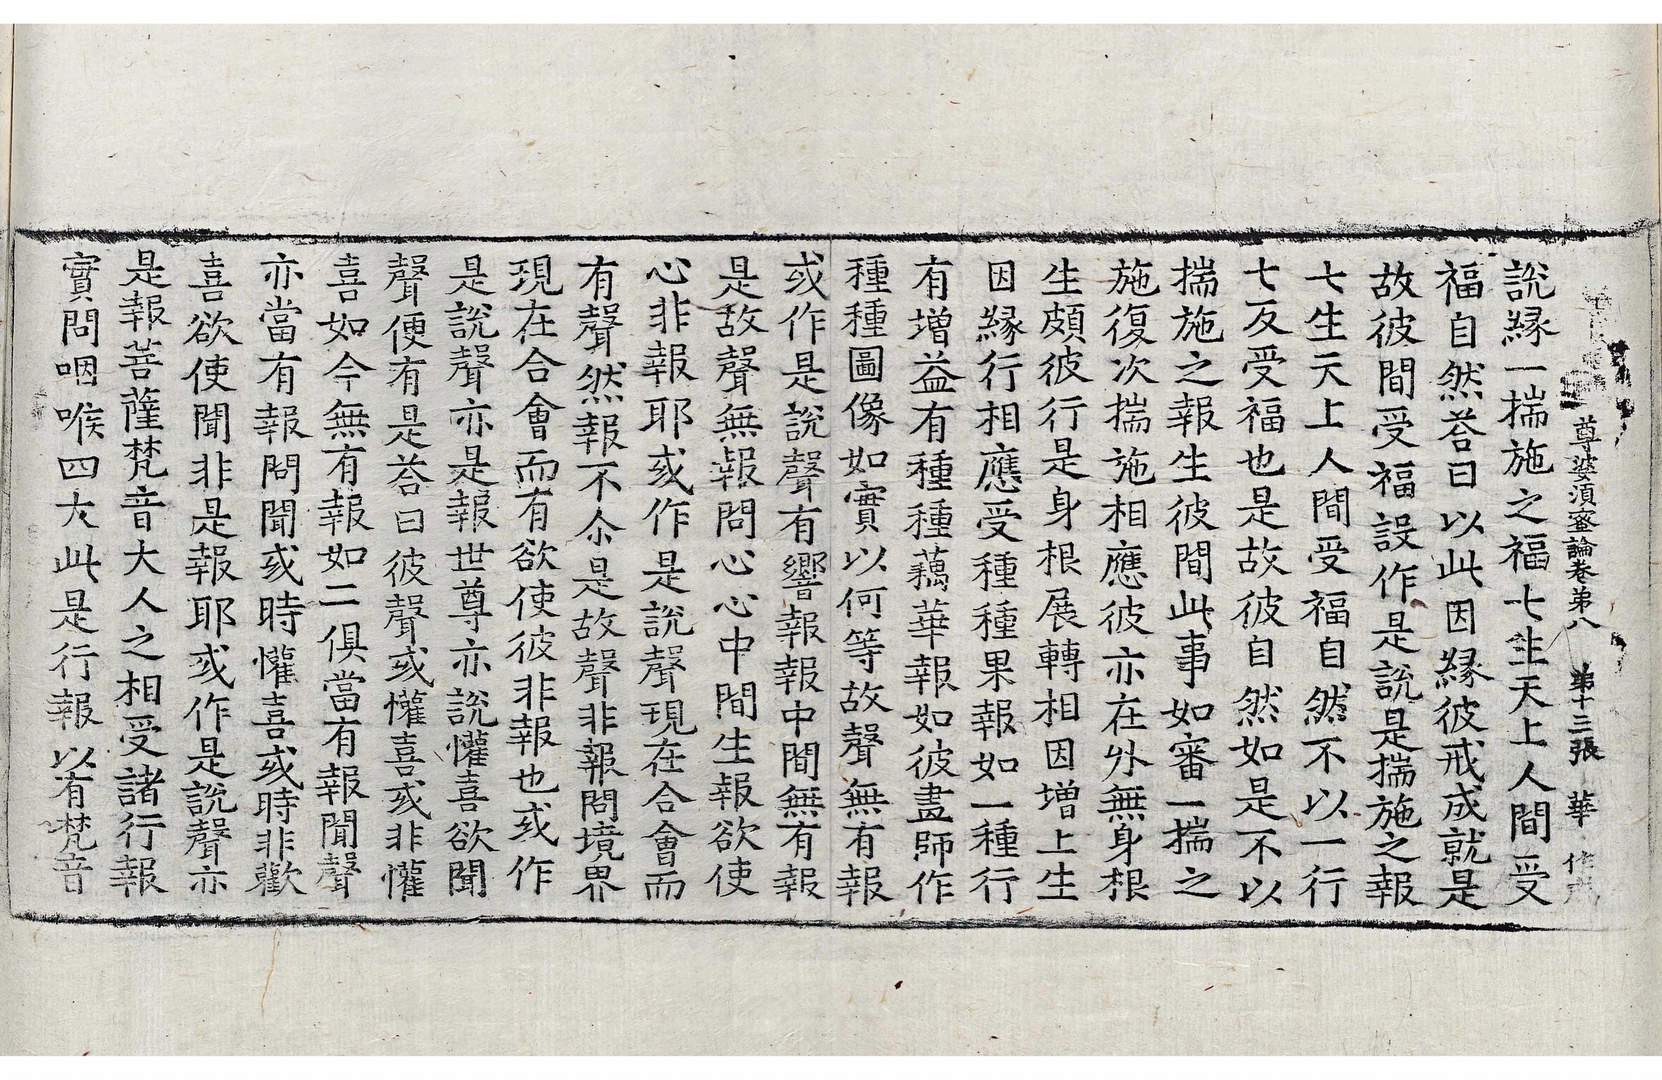 尊婆須蜜論卷第八 第十三張 華
說緣一揣施之福七生天上人間受
福自然荅曰以此因緣彼戒成就是
故彼間受福設作是說是揣施之報
七生天上人間受福自然不以一行
七反受福也是故彼自然如是不以
揣施之報生彼間此事如審一揣之
施復次揣施相應彼亦在外無身根
生頗彼行是身根展轉相因增上生
因緣行相應受種種果報如一種行
有增益有種種藕華報如彼畫師作
種種圖像如實以何等故聲無有報
或作是說聲有響報報中間無有報
是故聲無報問心心中間生報欲使
心非報耶或作是說聲現在合會而
有聲然報不尒是故聲非報問境界
現在合會而有欲使彼非報也或作
是說聲亦是報世尊亦說懽喜欲聞
聲便有是荅曰彼聲或懽喜或非懽
喜如今無有報如二俱當有報聞聲
亦當有報問聞或時懽喜或時非歡
喜欲使聞非是報耶或作是說聲亦
是報菩薩梵音大人之相受諸行報
實問咽喉四大此是行報以有梵音